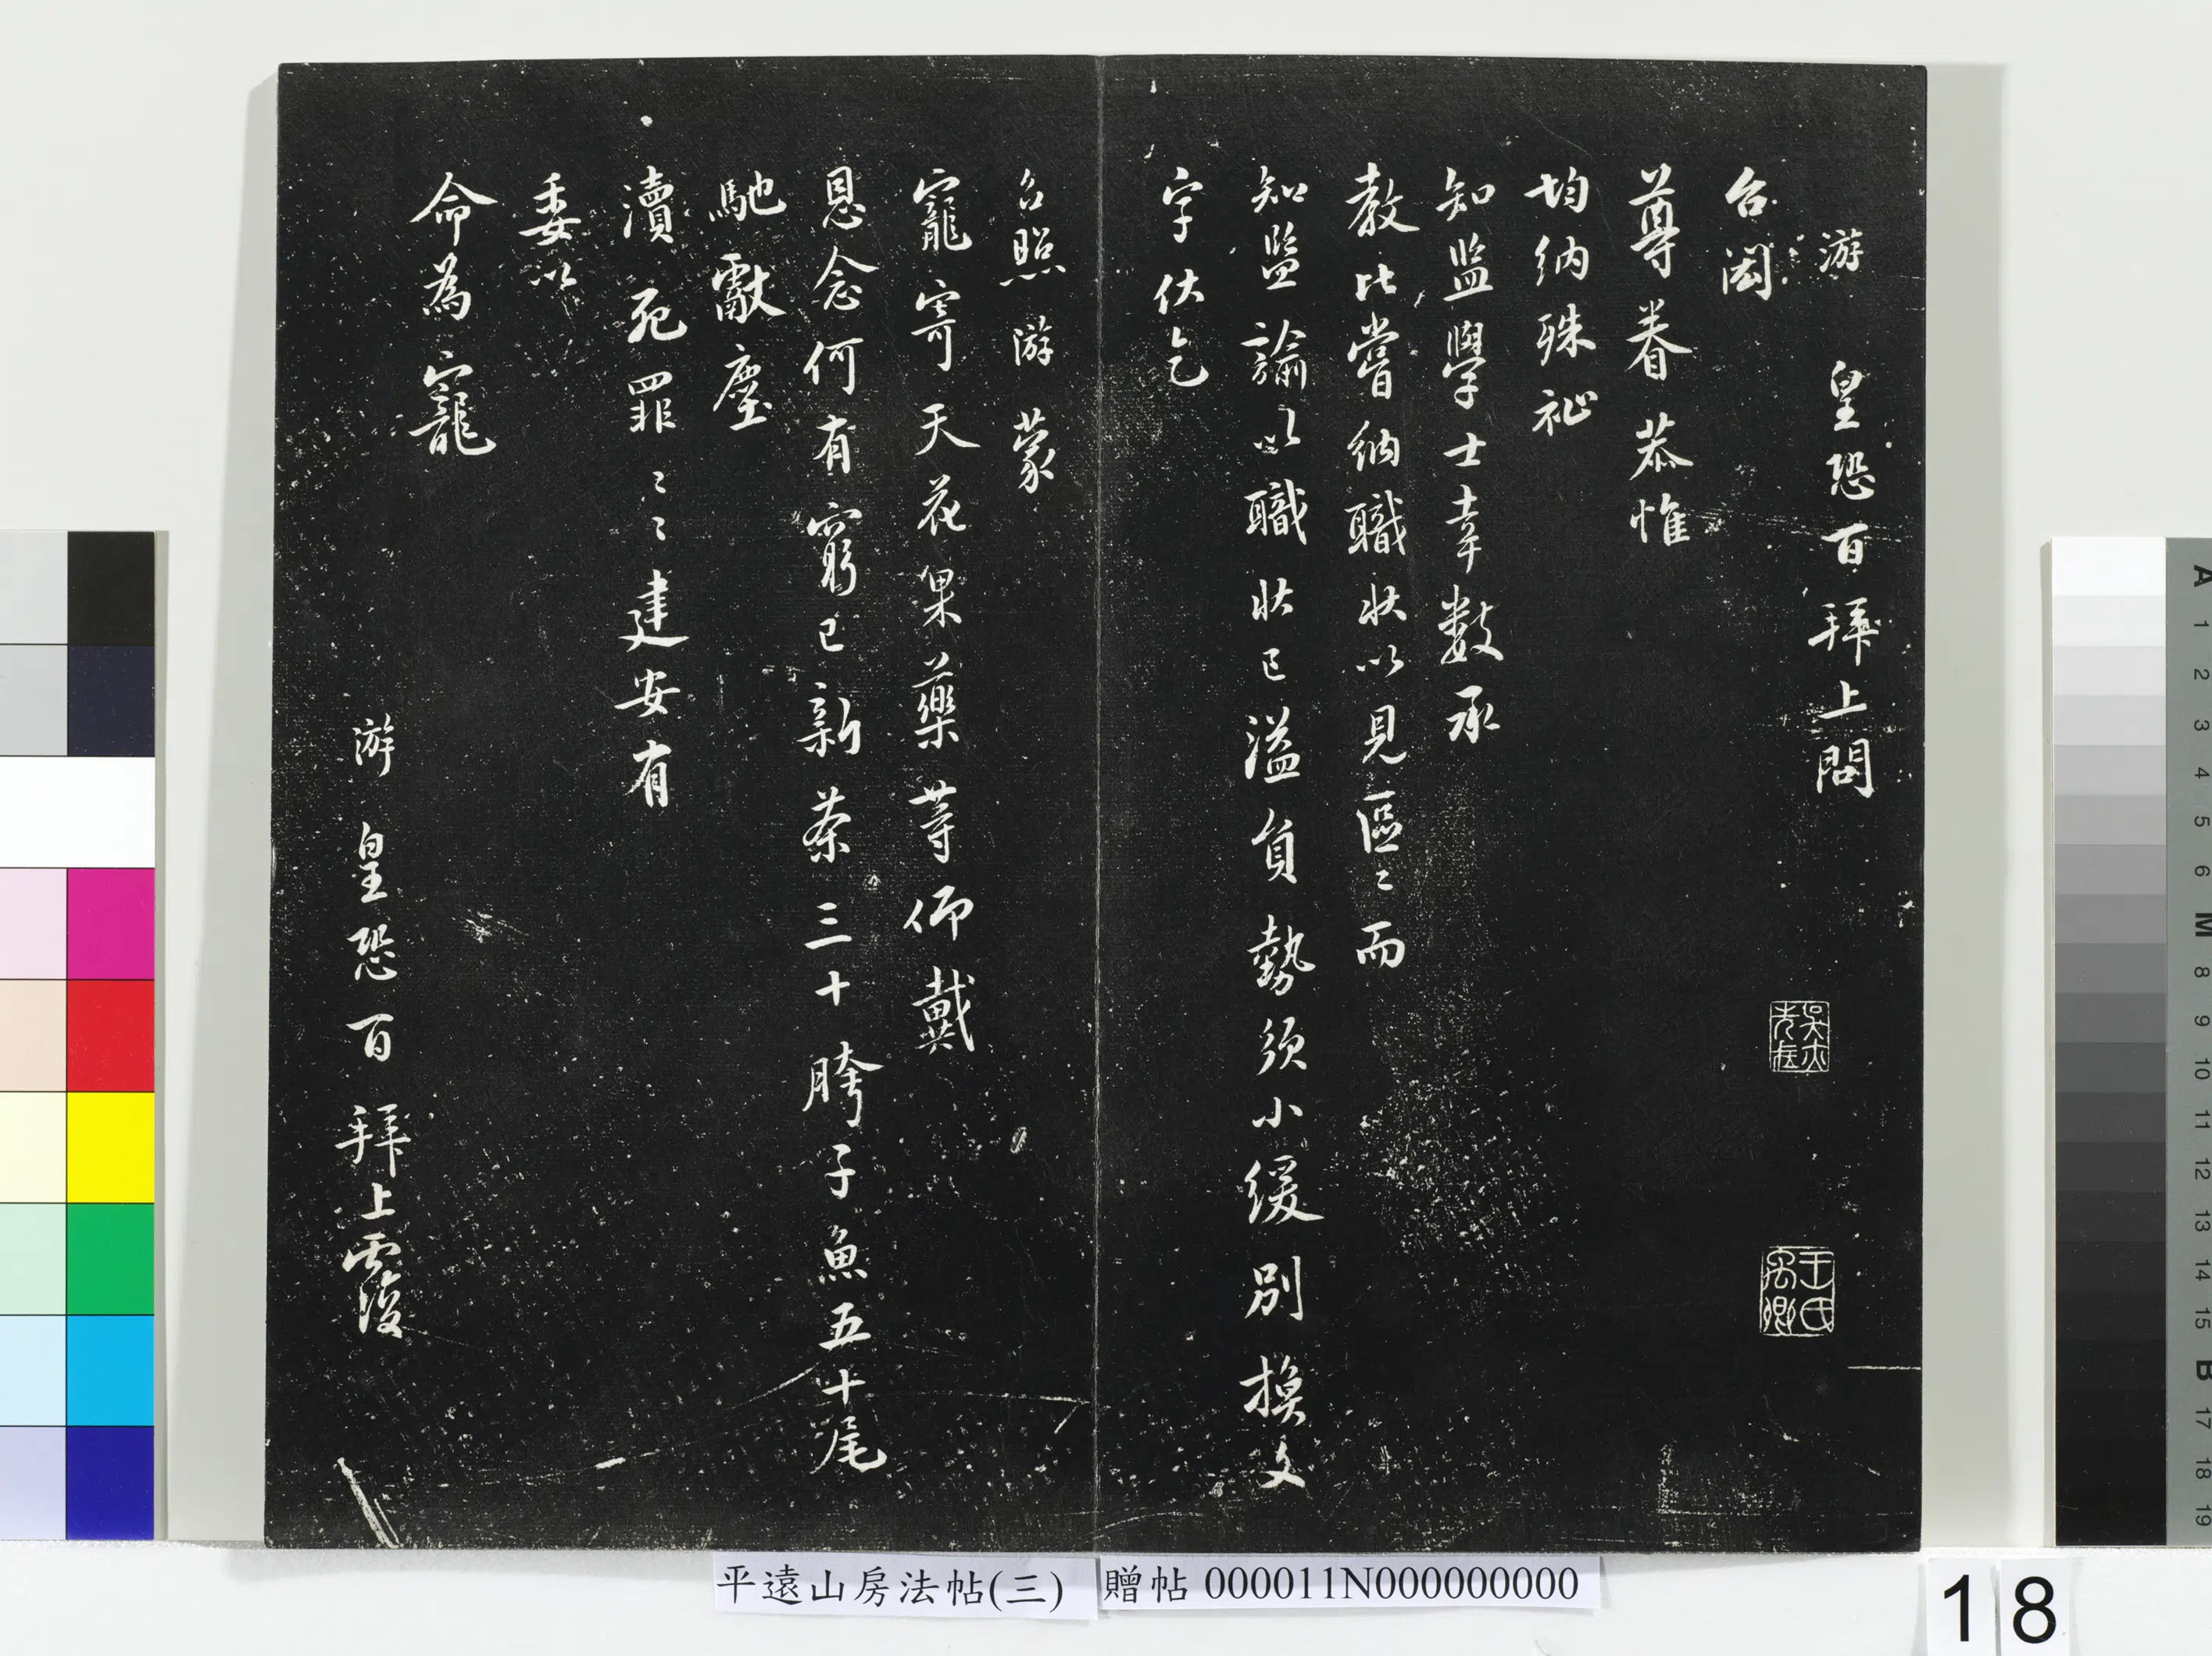 游 皇恐百拜上問
台閎
尊眷恭惟
均納殊祉
知監學士幸數承
教比嘗納職狀以見區〻而
知監諭以職狀已溢員勢須小緩別換文
字伏乞
台照游 蒙
寵寄天花果藥等仰戴
恩念何有窮已新茶三十胯子魚五十尾
馳獻塵
瀆死罪〻〻建安有
委以
命為寵
游 皇恐百拜上覆
王氏禹卿
平遠山房法帖(三)
贈帖 000011N000000000
18
A
1
2
3
4
5
6
M
8
9
10
11
12
13
14
15
B
17
18
19